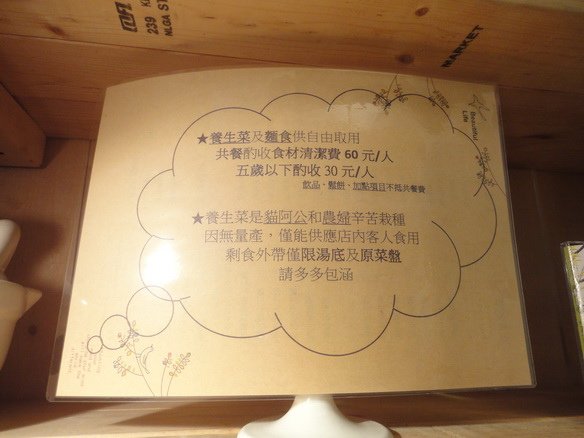 239 K
NLGA ST
MARKET
Beautiful
Life
★養生菜及麵食供自由取用
共餐酌收食材清潔費 60 元/人
五歲以下酌收 30 元/人
飲品、鬆餅、加點項目不抵共餐費
★養生菜是貓阿公和農婦辛苦栽種
因無量產，僅能供應店內客人食用
剩食外帶僅限湯底及原菜盤
請多多包涵